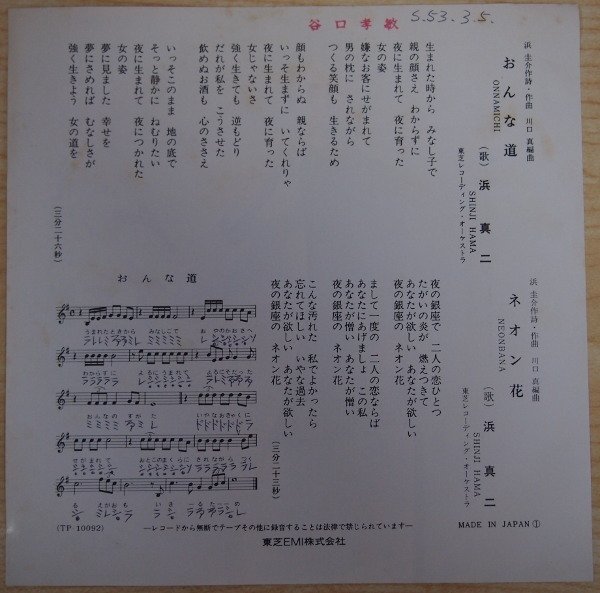 谷口孝敏
S.53.3.5.
浜 圭介作詩・作曲 川口 真編曲
おんな道
ONNAMICHI
(歌) 浜 真二
SHINJI HAMA
東芝レコーディング・オーケストラ
生まれた時から みなし子で
親の顔さえ わからずに
夜に生まれて 夜に育った
女の姿
嫌なお客にせがまれて
男の枕に されながら
つくる笑顔も 生きるため
顔もわからぬ 親ならば
いっそ生まずに いてくれりゃ
夜に生まれて 夜に育った
女じゃないさ
強く生きても 逆もどり
だれが私を こうさせた
飲めぬお酒も 心のささえ
いっそこのまま 地の底で
そっと静かに ねむりたい
夜に生まれて 夜につかれた
女の姿
夢に見ました 幸せを
夢にさめれば むなしさが
強く生きよう 女の道を
(三分二十六秒)
浜 圭介作詩・作曲 川口 真編曲
ネオン花
NEONBANA
(歌) 浜 真二
SHINJI HAMA
東芝レコーディング・オーケストラ
夜の銀座で 二人の恋ひとつ
たがいの炎が 燃えつきて
あなたが欲しい あなたが欲しい
夜の銀座の ネオン花
まして一度の 二人の恋ならば
あなたにあげましょ この私
あなたが憎い あなたが憎い
夜の銀座の ネオン花
こんな汚れた 私でよかったら
忘れてほしい いやな過去
あなたが欲しい あなたが欲しい
夜の銀座の ネオン花
(三分二十三秒)
おんな道
うまれたときから みなしごで お やのかおさえ
わからずに よるにうまれて よるにそだった
おんなのすがた いやなおきゃくに
せがまれて おとこのまくらに されながら つく
る えがおも い き る た ー め
(TP 10092)
―レコードから無断でテープその他に録音することは法律で禁じられています―
MADE IN JAPAN ①
東芝EMI株式会社